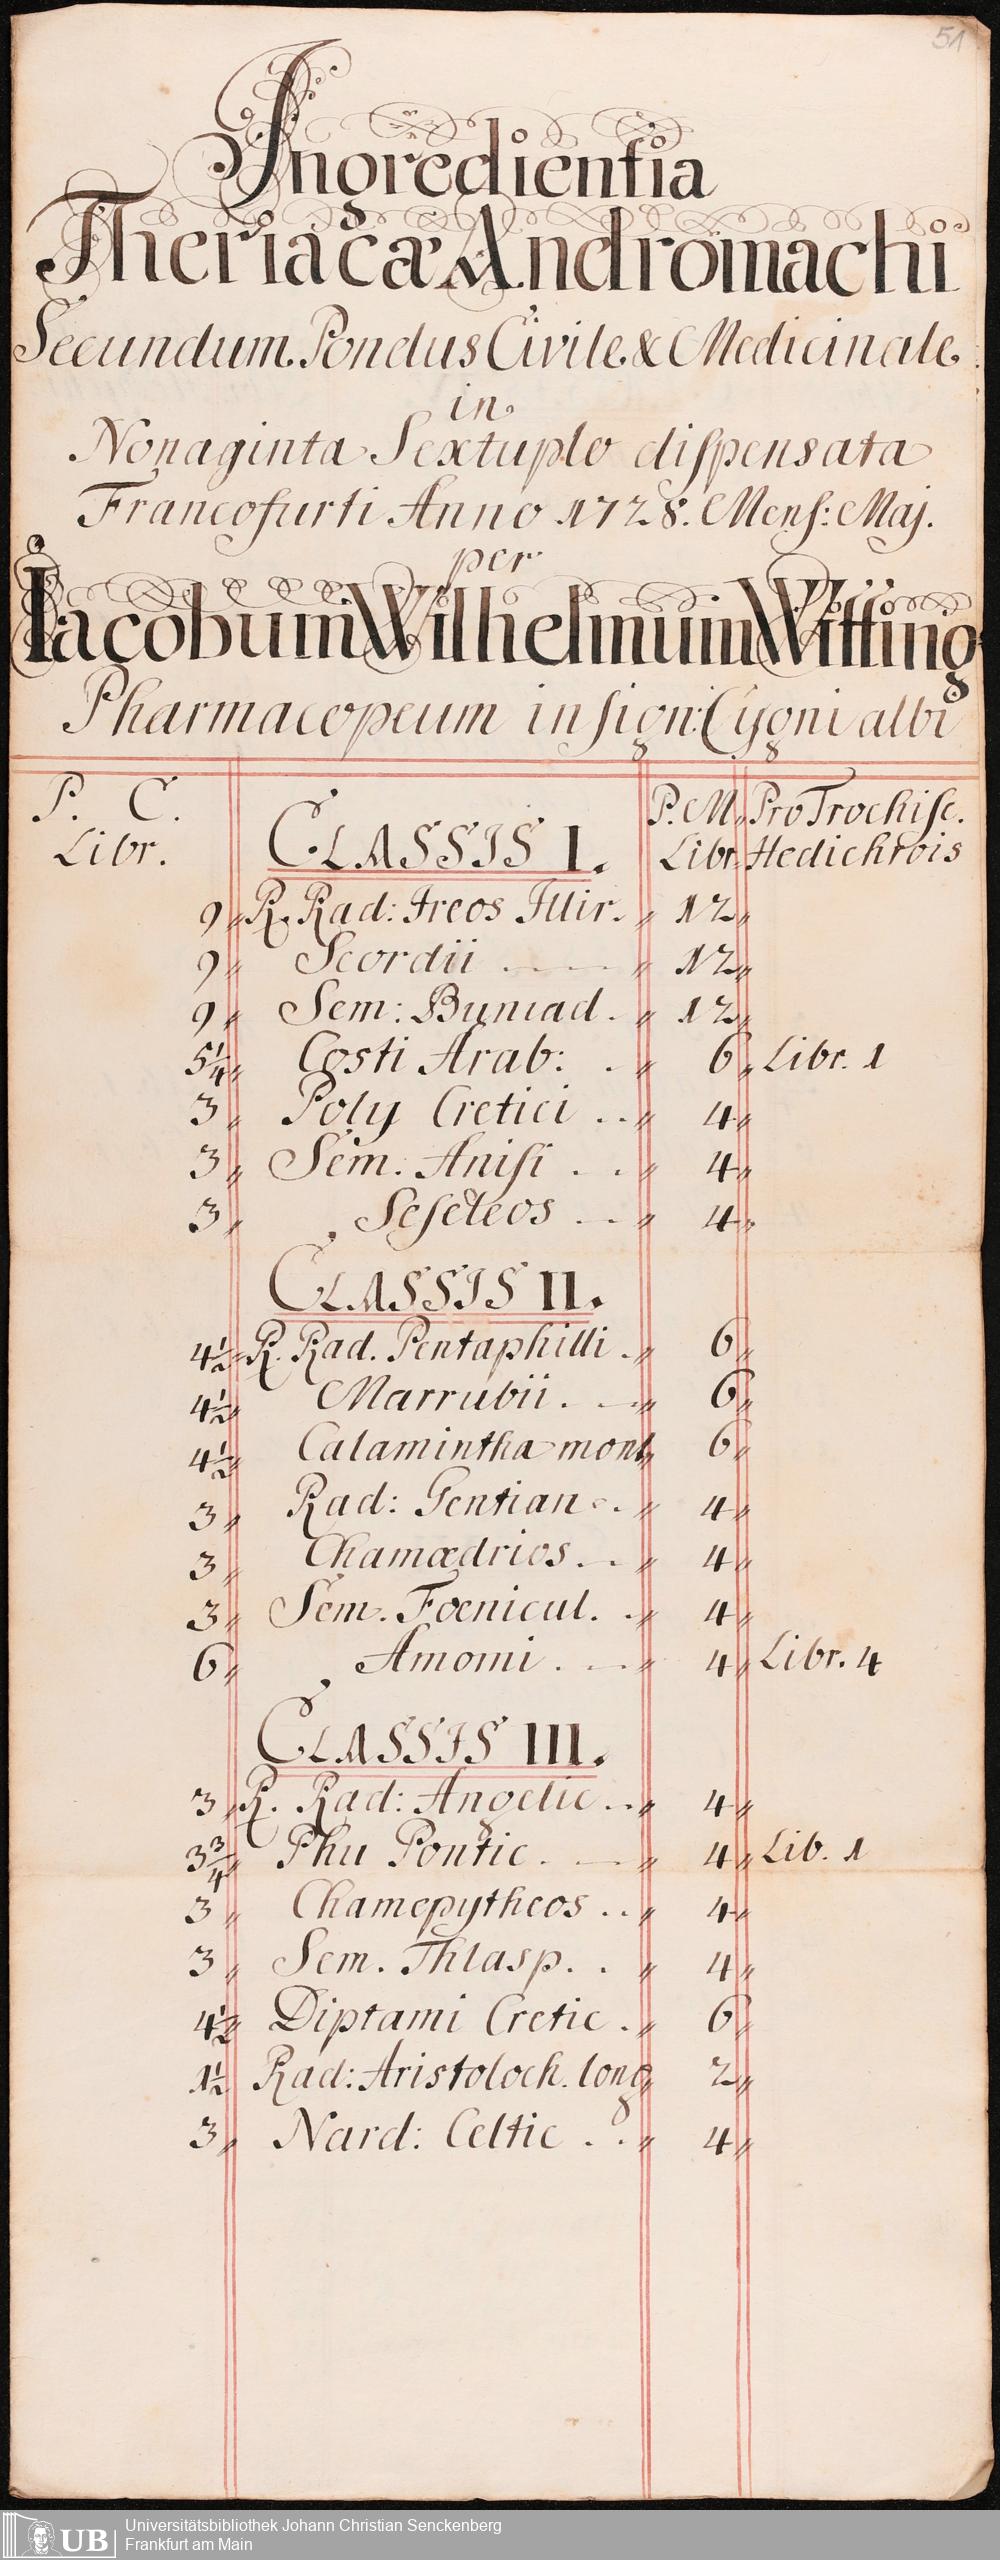 51
Ingredientia
Theriacæ Andromachi
Secundum Pondus Civile & Medicinale
in
Nonaginta Sextuplo dispensata
Francofurti Anno 1728. Mens: Maj.
per
Iacobum Wilhelmum Witting
Pharmacopeum in sign: Cygni albi
P. C. P. M. Pro Trochisc.
Libr. CLASSIS I. Libr. Hedichrois
9 " R. Rad: Ireos Illir. " 12 "
9 " Scordii " 12 "
9 " Sem: Buniad. " 12 "
5 1/4 " Costi Arab: . " 6 " Libr. 1
3 " Poly Cretici .. " 4 "
3 " Sem. Anisi . . " 4 "
3 " Seseleos . " 4 "
CLASSIS II.
4 1/2 " R. Rad. Pentaphilli . " 6 "
4 1/2 " Marrubii . " 6 "
4 1/2 " Calamintha mont " 6 "
3 " Rad: Gentian . " 4 "
3 " Chamædrios . " 4 "
3 " Sem. Foenicul. . " 4 "
6 " Amomi . " 4 " Libr. 4
CLASSIS III.
3 " R. Rad: Angelic .. " 4 "
3 3/4 " Phu Pontic . " 4 " Lib. 1
3 " Chamepytheos .. " 4 "
3 " Sem. Thlasp. . " 4 "
4 1/2 " Diptami Cretic . " 6 "
1 1/2 Rad: Aristoloch. long " 2 "
3 " Nard: Celtic . . " 4 "
UB
Universitätsbibliothek Johann Christian Senckenberg
Frankfurt am Main